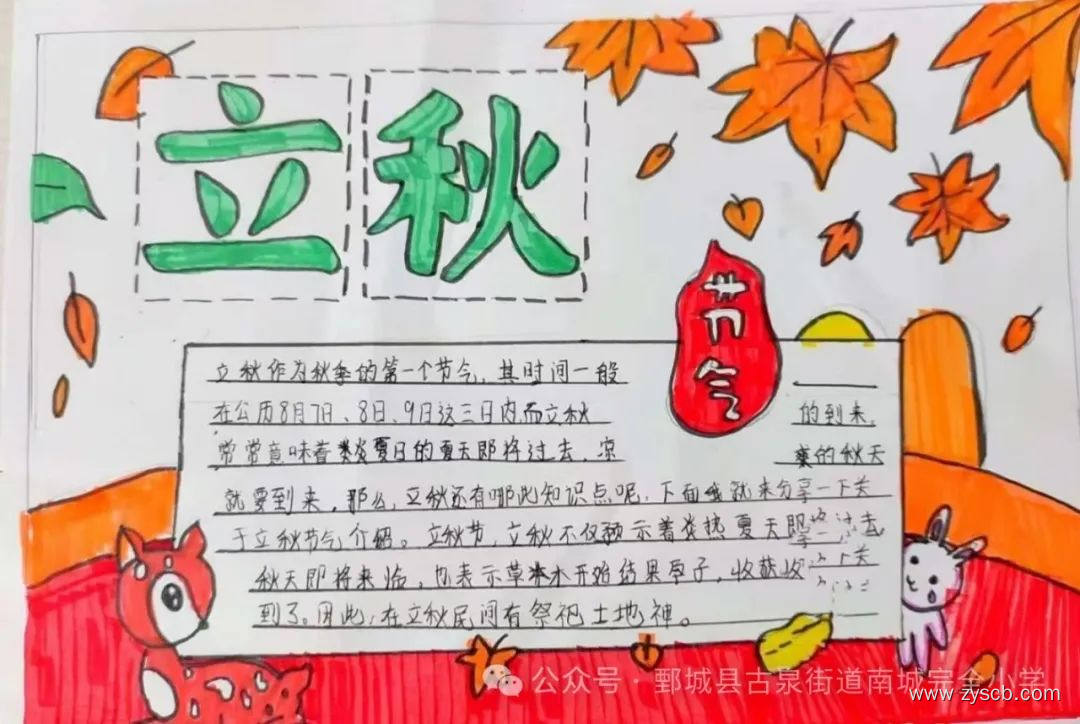 立秋
节气
立秋作为秋季的第一个节气,其时间一般
在公历8月7日、8日、9日这三日内,而立秋的到来,
常常意味着炎夏日的夏天即将过去,凉爽的秋天
就要到来,那么,立秋还有哪些知识点呢,下面我就来分享一下关
于立秋节气介绍。立秋节,立秋不仅预示着炎热夏天即将过去,
秋天即将来临,也表示草木开始结果孕子,收获
到了。因此,在立秋民间有祭祀土地神。
公众号·鄄城县古泉街道南城完全小学
www.zyscb.com